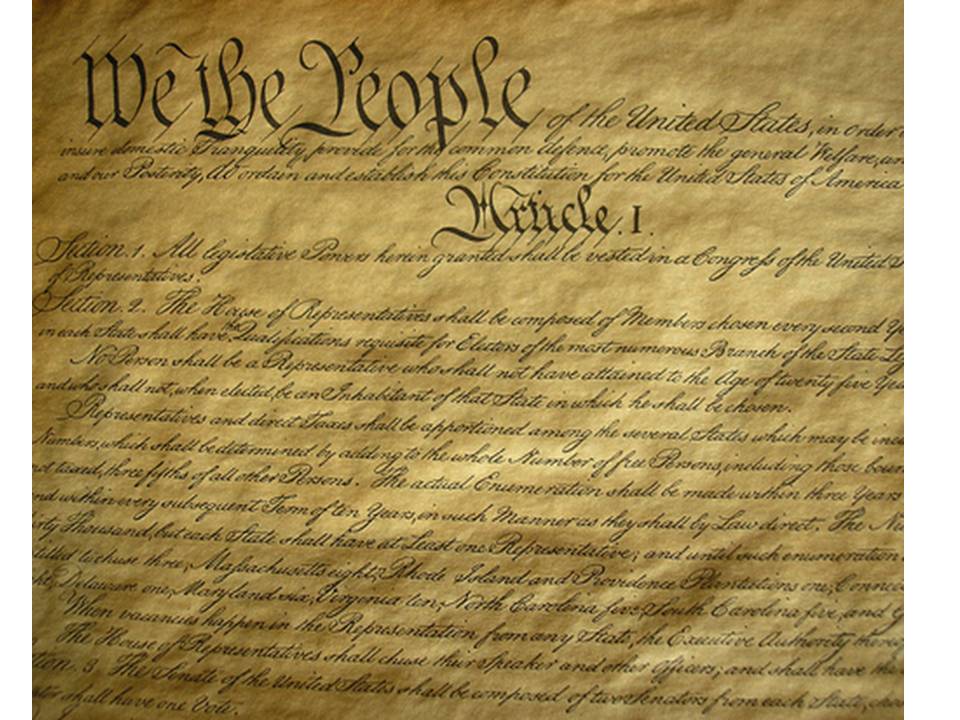 We the People of the United States, in Order
insure domestic Tranquility, provide for the common defence, promote the general Welfare, an
and our Posterity, do ordain and establish this Constitution for the United States of America
Article. I.
Section. 1. All legislative Powers herein granted shall be vested in a Congress of the United S
of Representatives.
Section. 2. The House of Representatives shall be composed of Members chosen every second Ye
in each State shall have the Qualifications requisite for Electors of the most numerous Branch of the State Leg
No Person shall be a Representative who shall not have attained to the Age of twenty five Yea
and who shall not, when elected, be an Inhabitant of that State in which he shall be chosen.
Representatives and direct Taxes shall be apportioned among the several States which may be incl
Numbers, which shall be determined by adding to the whole Number of free Persons, including those boun
not taxed, three fifths of all other Persons. The actual Enumeration shall be made within three Years
and within every subsequent Term of ten Years, in such Manner as they shall by Law direct. The Nu
irty Thousand, but each State shall have at Least one Representative; and until such enumeration
titled to chuse three, Massachusetts eight, Rhode Island and Providence Plantations one, Connec
ht, Delaware one, Maryland six, Virginia ten, North Carolina five, South Carolina five, and G
When vacancies happen in the Representation from any State, the Executive Authority there
The House of Representatives shall chuse their Speaker and other Officers; and shall have the
tion. 3. The Senate of the United States shall be composed of two Senators from each State, chos
ator shall have one Vote.